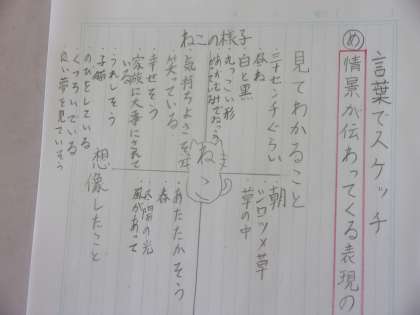 言葉でスケッチ
め 情景が伝わってくる表現の
見てわかること
ねこの様子
二十センチぐらい
白と黒
丸っこい形
気持ちよさそう
笑っている
幸せそう
家族に大事にされて
いる
うれしそう
子猫
のびをしている
くつろいでいる
良い夢を見ていそう
ねこ
朝
シロツメ草
草の中
あたたかそう
春
太陽の光
風があって
想像したこと